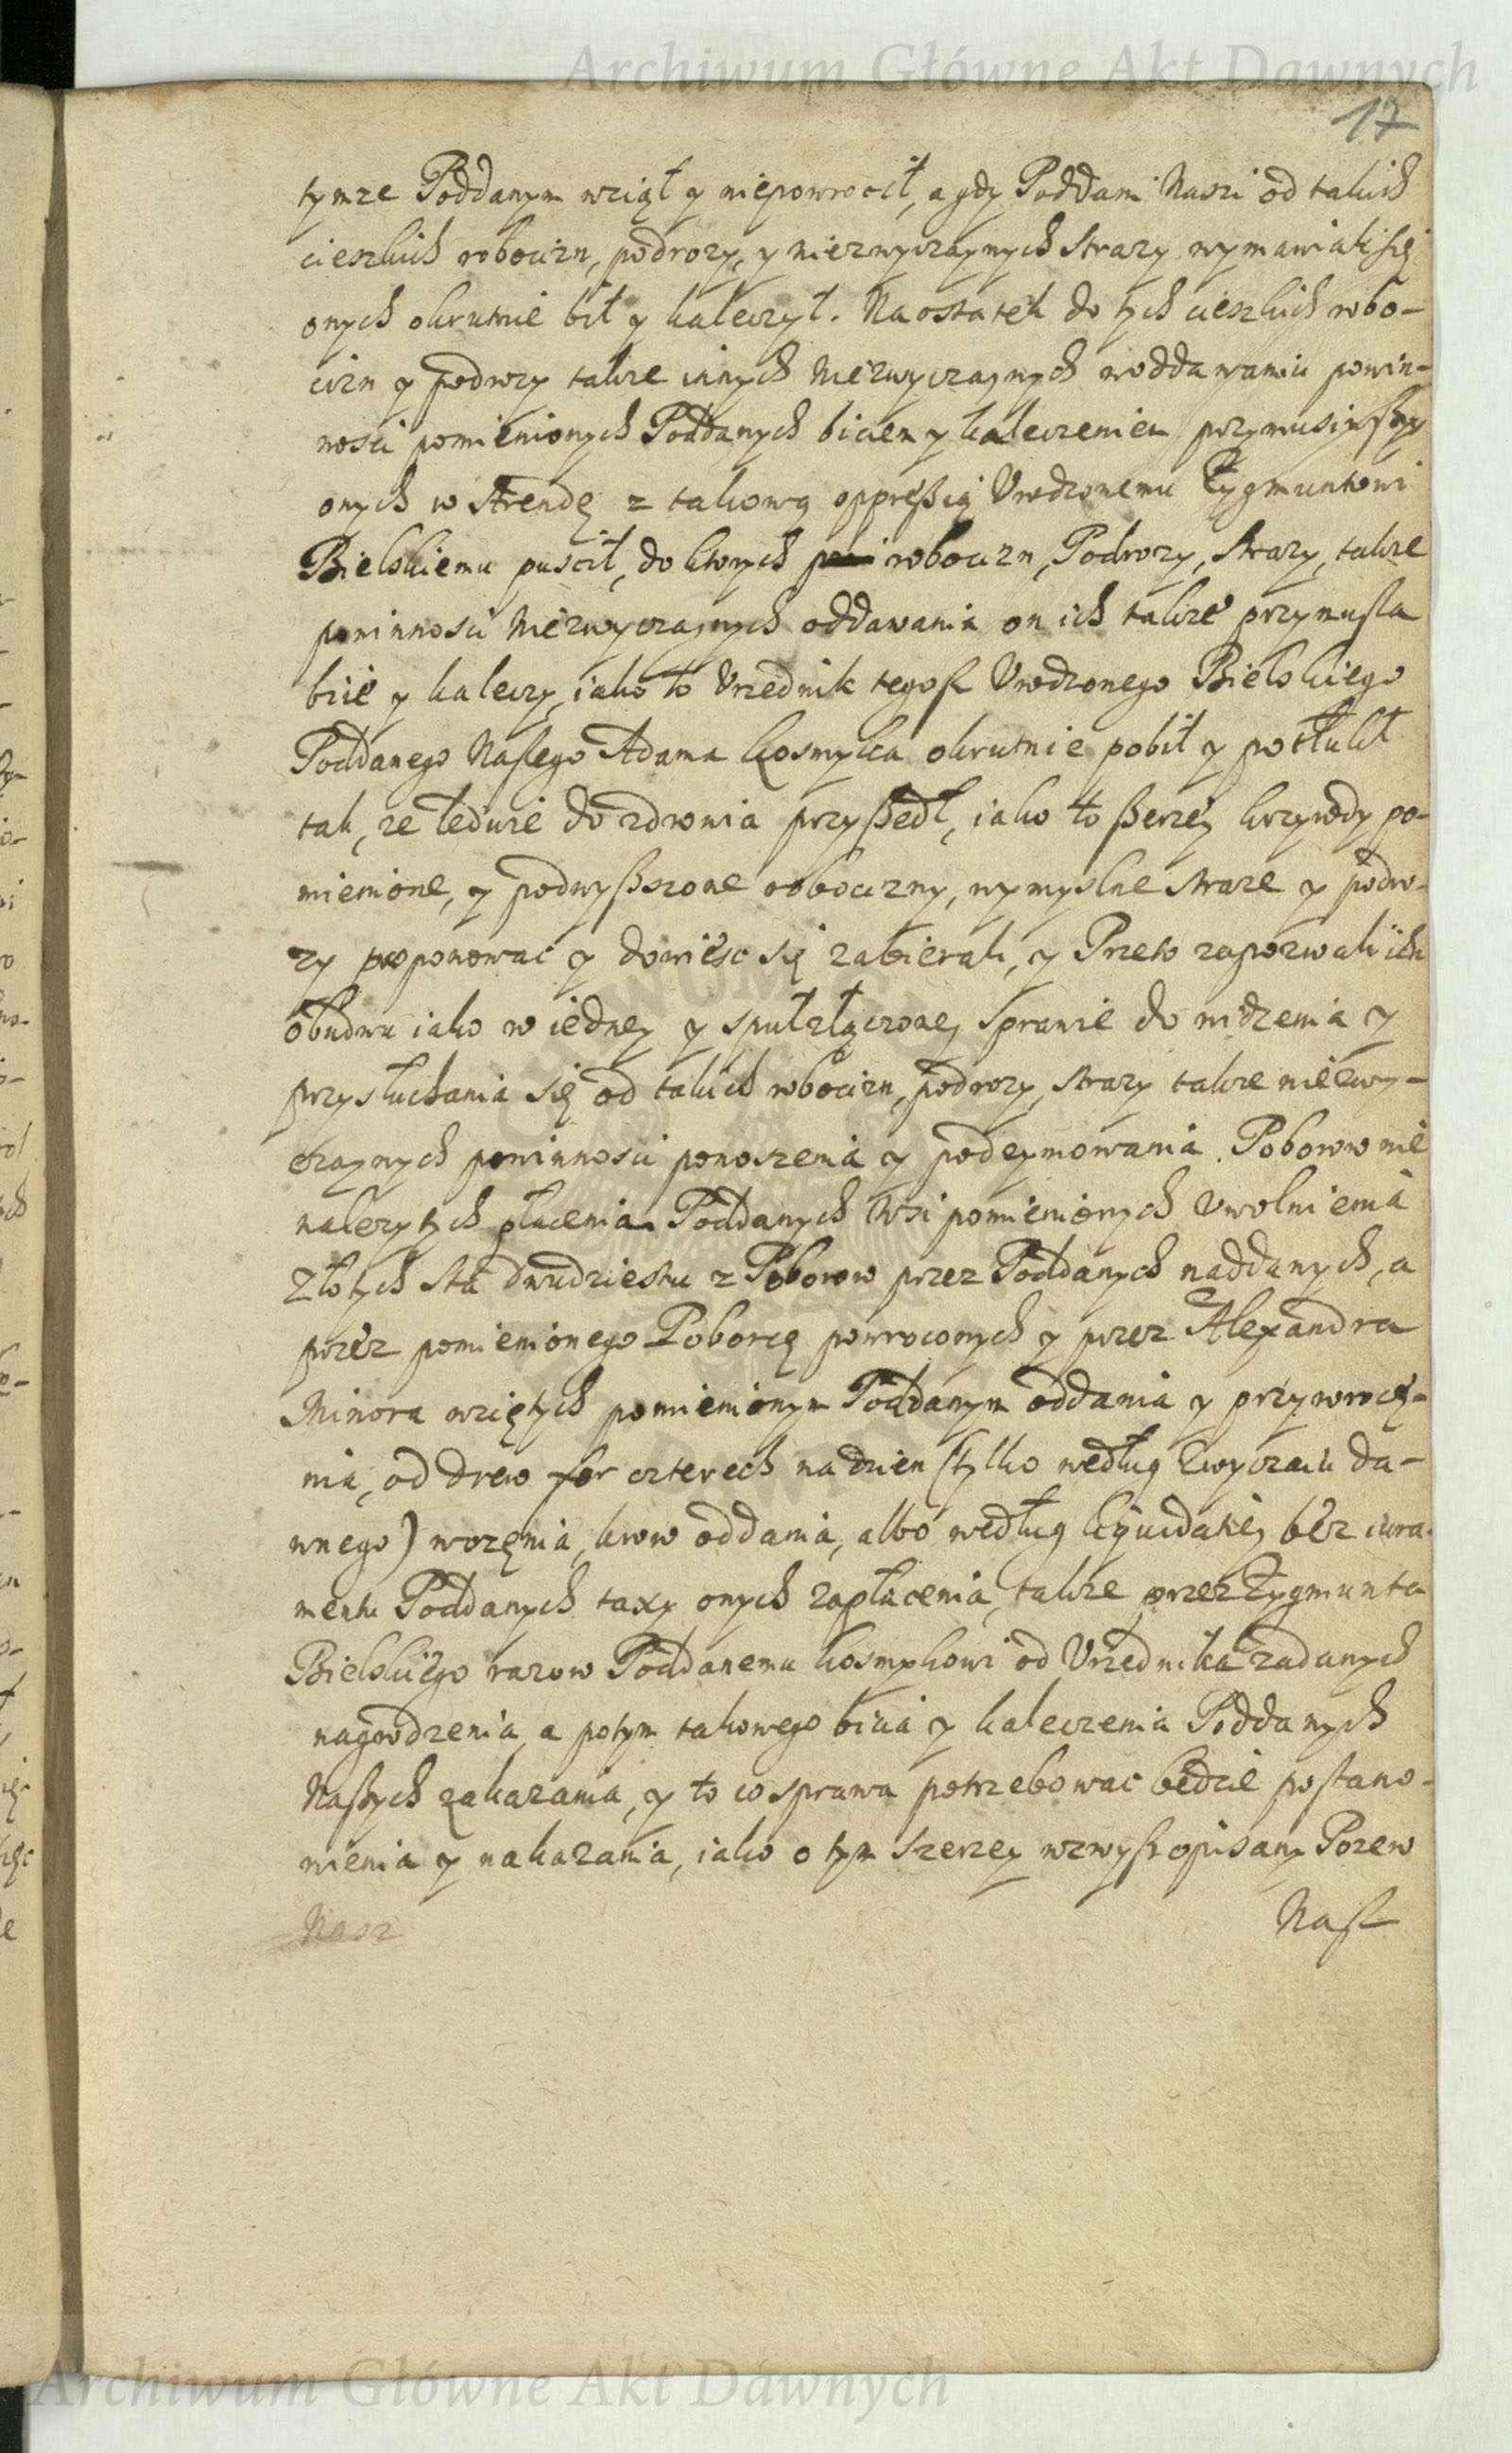 Archiwum Główne Akt Dawnych
17
tymze Poddanym wziął y niepowrocił, a gdy Poddani Naszi od takich
cieszkich robocizn, podrozy, y niezwyczaynych strazy wymawiali się
onych okrutnie bił y kaleczył. Naostatek do tych cieszkich robo-
cizn y podrozy takze innych niezwyczaynych woddawaniu powin-
nosci pomienionych Poddanych biciem y kaleczeniem przymusiwszy
onych w Arendę z takową oppressią Urodzonemu Zygmuntowi
Bielskiemu puscił, do ktorych robocizn, Podrozy, strazy, takze
powinnosci niezwyczaynych oddawania on ich takze przymusza
biie y kaleczy, iako to Urzednik tegosz Urodzonego Bielskiego
Poddanego Naszego Adama Kosmyka okrutnie pobił y potłukł
tak, ze ledwie do zdrowia przyszedł, iako to szerzey krzywdy po-
mienione, y podwyszszone robocizny, wymyslne straze y podro-
zy proponowac y doniesc się zabierali, y Przeto zapozwali ich
obudwu iako w iedney y społzłączoney sprawie do widzenia y
przysłuchania się od takich robocizn, podrozy, strazy takze niezwy-
czaynych powinnosci ponoszenia y podeymowania. Poborow nie
nalezytych płacenia Poddanych Wsi pomienionych Uwolnienia
Złotych sta dwudziestu z Poborow przez Poddanych naddanych, a
przez pomienionego Poborcę powroconych y przez Alexandra
Minora wziętych pomienionym Poddanym oddania y przywroce-
nia, od drew for czterech na dzien (tylko według zwyczaiu da-
wnego) wozenia, krow oddania, albo według liquidatiey bez iura-
mentu Poddanych taxy onych zapłacenia, takze przez Zygmunta
Bielskiego razow Poddanemu Kosmykowi od Urzednika zadanych
nagrodzenia, a potym takowego bicia y kaleczenia Poddanych
Naszych zakazania, y to co sprawa potrzebowac będzie postano-
wienia y nakazania, iako o tym szerzey wzwysz opisany Pozew
Nasz
Nasz
Archiwum Główne Akt Dawnych